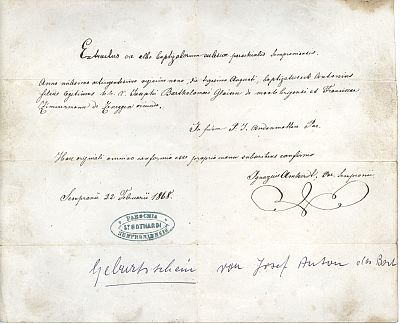 Extractus ex albo baptizatorum ecclesiae parochialis Semproniensis.
Anno millesimo octingentesimo vigesimo nono die vigesima Augusti, baptizatus est Antonius
filius legitimus Josephi Bartholomaei de et Franciscae
Zimmermann de oriunda.
In fidem P. J. Andenmatten Par.
Haec originali omnino conformia esse propria manu subscribens confirmo
Ignazius Par. Sempronii
Sempronii 22 Februarii 1868.
PAROCHIA
St GOTHARDI
SEMPRONIENSIS
Geburtsschein von Josef Anton des Bart